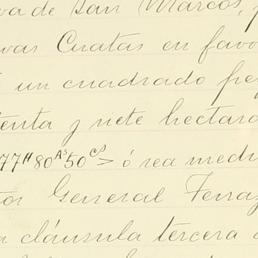 va de San Marcos,
vas Cuatas en favo
un cuadrado pe
tenta y siete hectar
77H 80As 50Cs > ó sea medi
General Terraz
a cláusula tercera